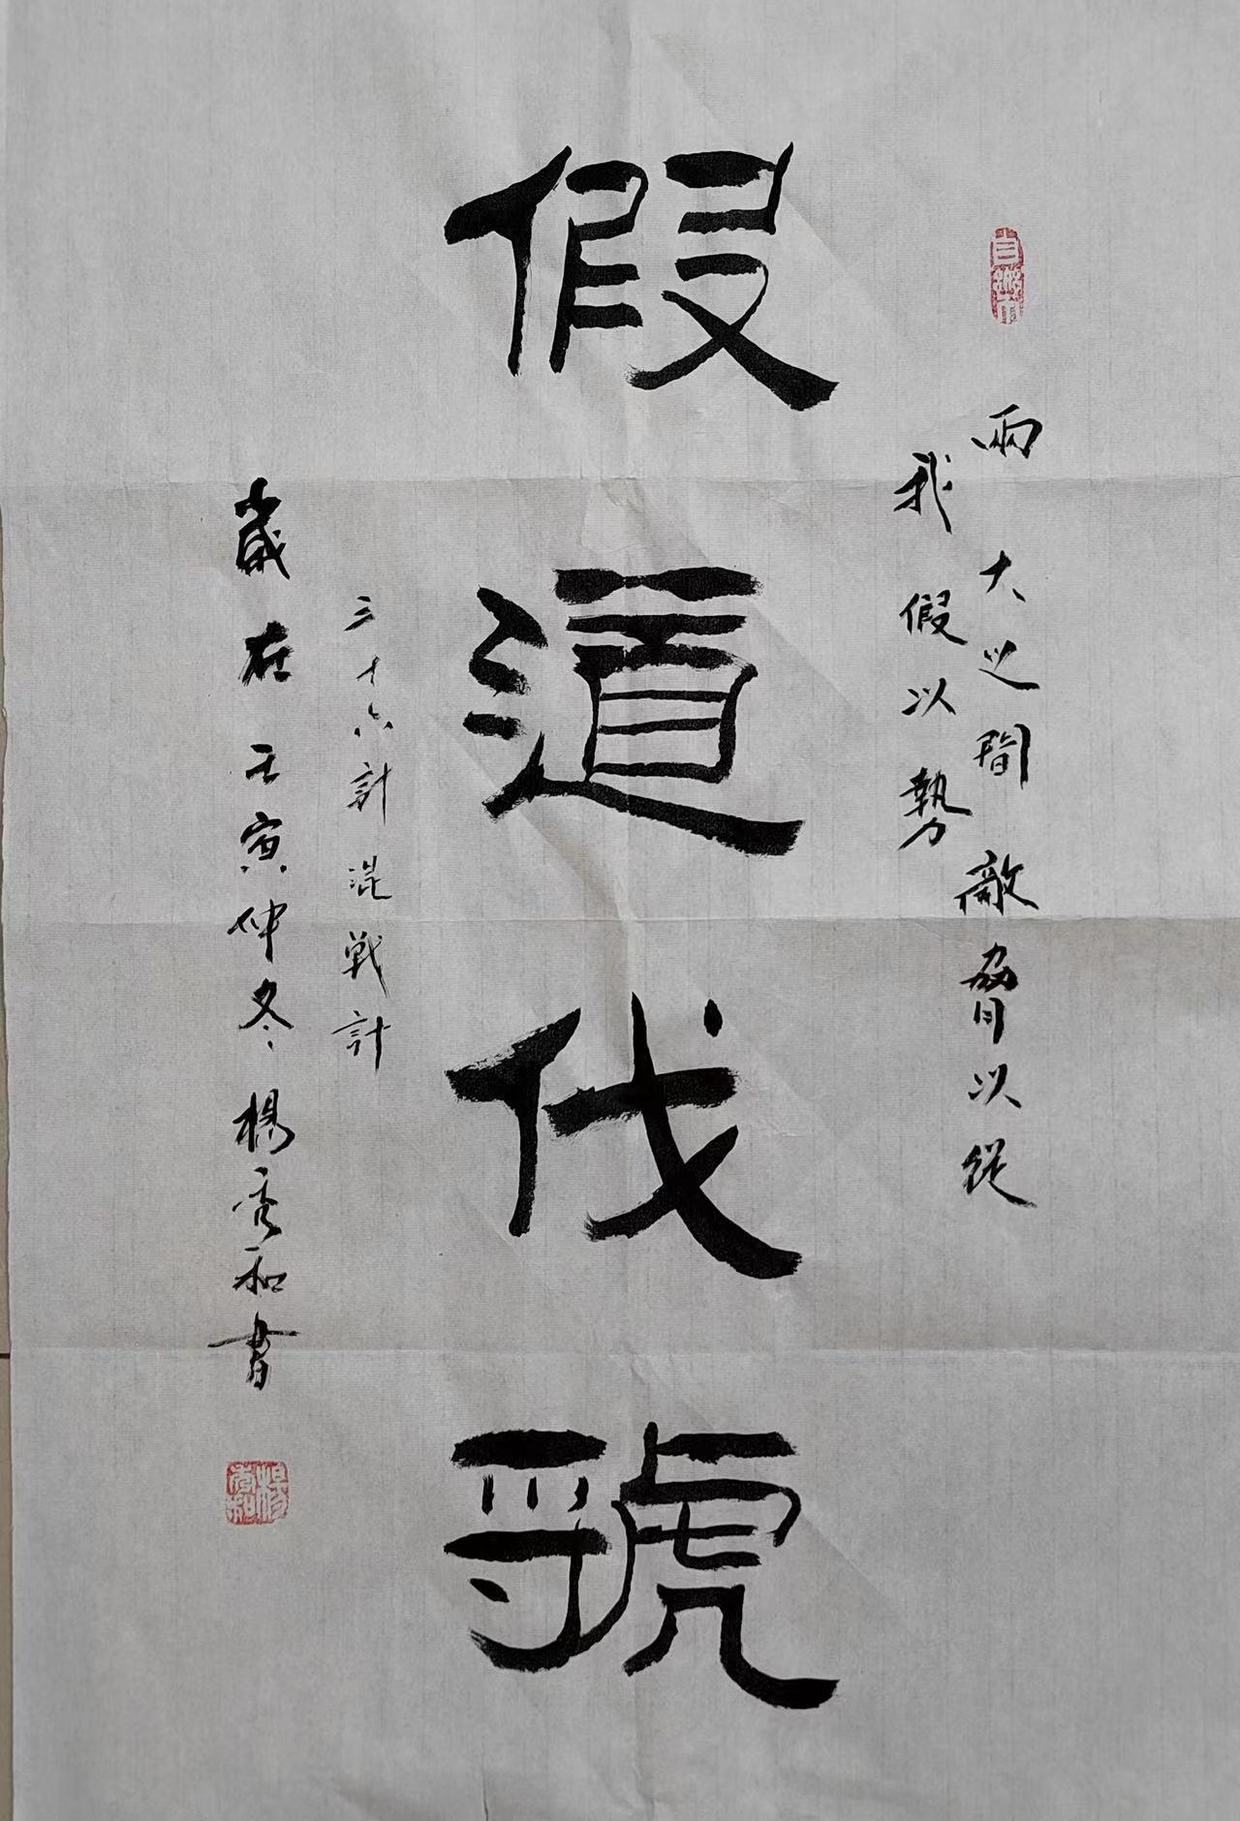 兩大之間敵脅以從
我假以勢
假道伐虢
三十六計混戰計
歲在壬寅仲冬楊秀和書
楊秀和